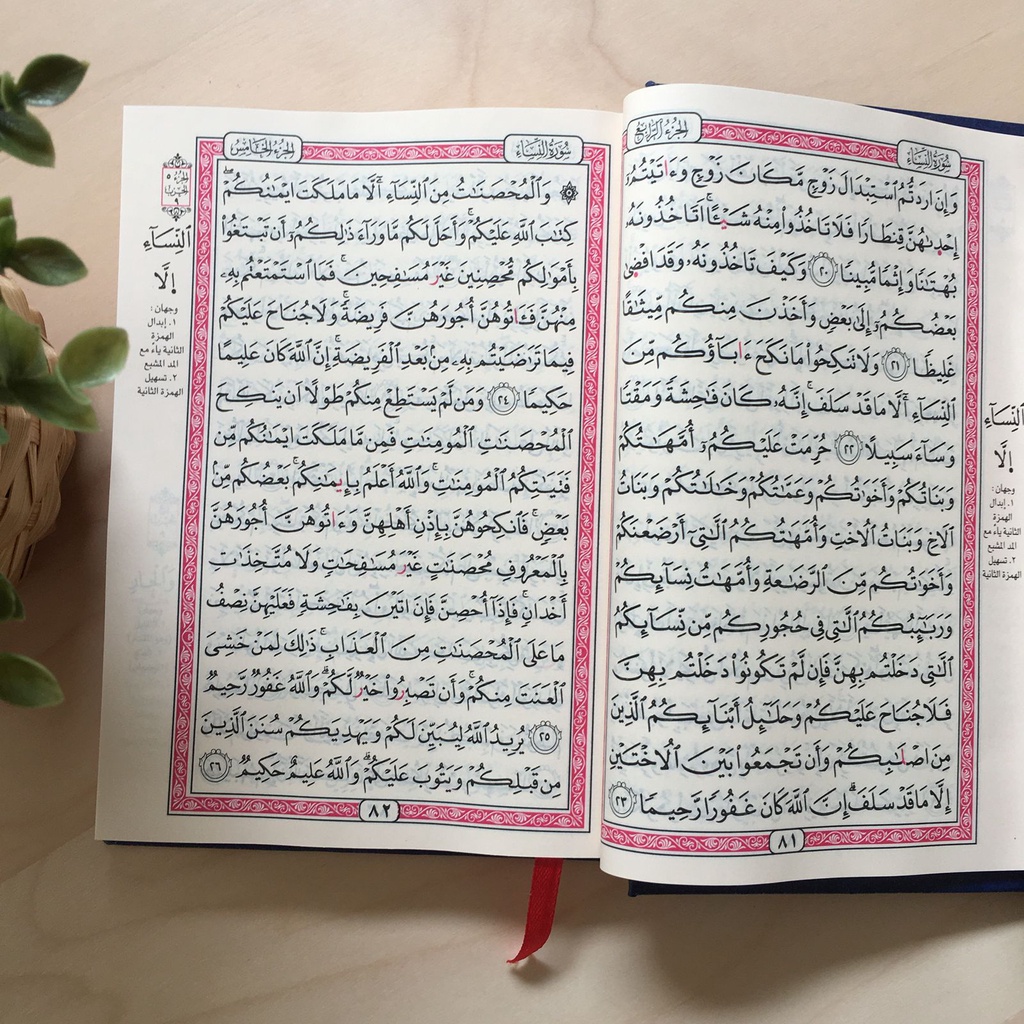 سُورَةُ النِّسَاءِ
الجُزْءُ الرَّابِعُ
وَإِنَ اَرَدتُّمُ اُسْتِبْدَالَ زَوْجٍ مَّكَانَ زَوْجٍ وَءَاتَيْتُمُۥٓ
إِحْدٜىٰهُنَّ قِنطَارًا فَلَا تَاخُذُوا۟ مِنْهُ شَيْـًٔا ۚ اَتَاخُذُونَهُۥ
بُهْتَٰنًا وَإِثْمًا مُّبِينًا ٢٠ وَكَيْفَ تَاخُذُونَهُۥ وَقَدَ اَفْضٜىٰ
بَعْضُكُمُۥٓ إِلَىٰ بَعْضٍ وَأَخَذْنَ مِنكُم مِّيثَٰقًا
غَلِيظًا ٢١ وَلَا تَنكِحُوا۟ مَا نَكَحَ ءَابَآؤُكُم مِّنَ
اَ۬لنِّسَآءِ اِ۪لَّا مَا قَدْ سَلَفَ ۚ إِنَّهُۥ كَانَ فَٰحِشَةً وَمَقْتًا
وَسَآءَ سَبِيلًا ٢٢ حُرِّمَتْ عَلَيْكُمُۥٓ أُمَّهَٰتُكُمْ
وَبَنَاتُكُمْ وَأَخَوَٰتُكُمْ وَعَمَّٰتُكُمْ وَخَٰلَٰتُكُمْ وَبَنَاتُ
اَ۬لَاخِ وَبَنَاتُ اُ۬لُاخْتِ وَأُمَّهَٰتُكُمُ اُ۬لَّٰتِےٓ أَرْضَعْنَكُمْ
وَأَخَوَٰتُكُم مِّنَ اَ۬لرَّضَٰعَةِ وَأُمَّهَٰتُ نِسَآئِكُمْ
وَرَبَٰٓئِبُكُمُ اُ۬لَّٰتِے فِے حُجُورِكُم مِّن نِّسَآئِكُمُ
اُ۬لَّٰتِے دَخَلْتُم بِهِنَّ فَإِن لَّمْ تَكُونُوا۟ دَخَلْتُم بِهِنَّ
فَلَا جُنَاحَ عَلَيْكُمْ وَحَلَٰٓئِلُ أَبْنَآئِكُمُ اُ۬لذِينَ
مِنَ اَصْلَٰبِكُمْ وَأَن تَجْمَعُوا۟ بَيْنَ اَ۬لُاخْتَيْنِ
إِلَّا مَا قَدْ سَلَفَ ۗ إِنَّ اَ۬للَّهَ كَانَ غَفُورًا رَّحِيمًا ٢٣
٨١
اَ۬لنِّسَآءِ
اِ۪لَّا
وجهان:
١. إبدال
الهمزة
الثانية ياء مع
المد المشبع
٢. تسهيل
الهمزة الثانية
سُورَةُ النِّسَاءِ
الجُزْءُ الخَامِسُ
۞ وَالْمُحْصَنَٰتُ مِنَ اَ۬لنِّسَآءِ اِ۪لَّا مَا مَلَكَتَ اَيْمَٰنُكُمْ ۖ
كِتَٰبَ اَ۬للَّهِ عَلَيْكُمْ ۚ وَأَحَلَّ لَكُم مَّا وَرَآءَ ذَٰلِكُمُۥٓ أَن تَبْتَغُوا۟
بِأَمْوَٰلِكُم مُّحْصِنِينَ غَيْرَ مُسَٰفِحِينَ ۚ فَمَا اَ۪سْتَمْتَعْتُم بِهِۦ
مِنْهُنَّ فَـَٔاتُوهُنَّ أُجُورَهُنَّ فَرِيضَةً ۚ وَلَا جُنَاحَ عَلَيْكُمْ
فِيمَا تَرَٰضَيْتُم بِهِۦ مِنۢ بَعْدِ اِ۬لْفَرِيضَةِ ۚ إِنَّ اَ۬للَّهَ كَانَ عَلِيمًا
حَكِيمًا ٢٤ وَمَن لَّمْ يَسْتَطِعْ مِنكُمْ طَوْلًا اَن يَنكِحَ
اَ۬لْمُحْصَنَٰتِ اِ۬لْمُومِنَٰتِ فَمِن مَّا مَلَكَتَ اَيْمَٰنُكُم مِّن
فَتَيَٰتِكُمُ اُ۬لْمُومِنَٰتِ ۚ وَاللَّهُ أَعْلَمُ بِإِيمَٰنِكُم ۚ بَعْضُكُم مِّنۢ
بَعْضٍ ۚ فَانكِحُوهُنَّ بِإِذْنِ أَهْلِهِنَّ وَءَاتُوهُنَّ أُجُورَهُنَّ
بِالْمَعْرُوفِ مُحْصَنَٰتٍ غَيْرَ مُسَٰفِحَٰتٍ وَلَا مُتَّخِذَٰتِ
أَخْدَانٍ ۚ فَإِذَآ أُحْصِنَّ فَإِنَ اَتَيْنَ بِفَٰحِشَةٍ فَعَلَيْهِنَّ نِصْفُ
مَا عَلَى اَ۬لْمُحْصَنَٰتِ مِنَ اَ۬لْعَذَابِ ۚ ذَٰلِكَ لِمَنْ خَشِيَ
اَ۬لْعَنَتَ مِنكُمْ ۚ وَأَن تَصْبِرُوا۟ خَيْرٌ لَّكُمْ ۗ وَاللَّهُ غَفُورٌ رَّحِيمٌ
٢٥ يُرِيدُ اُ۬للَّهُ لِيُبَيِّنَ لَكُمْ وَيَهْدِيَكُمْ سُنَنَ اَ۬لذِينَ
مِن قَبْلِكُمْ وَيَتُوبَ عَلَيْكُمْ ۗ وَاللَّهُ عَلِيمٌ حَكِيمٌ ٢٦
٨٢
اَ۬لنِّسَآءِ
اِ۪لَّا
وجهان:
١. إبدال
الهمزة
الثانية ياء مع
المد المشبع
٢. تسهيل
الهمزة الثانية